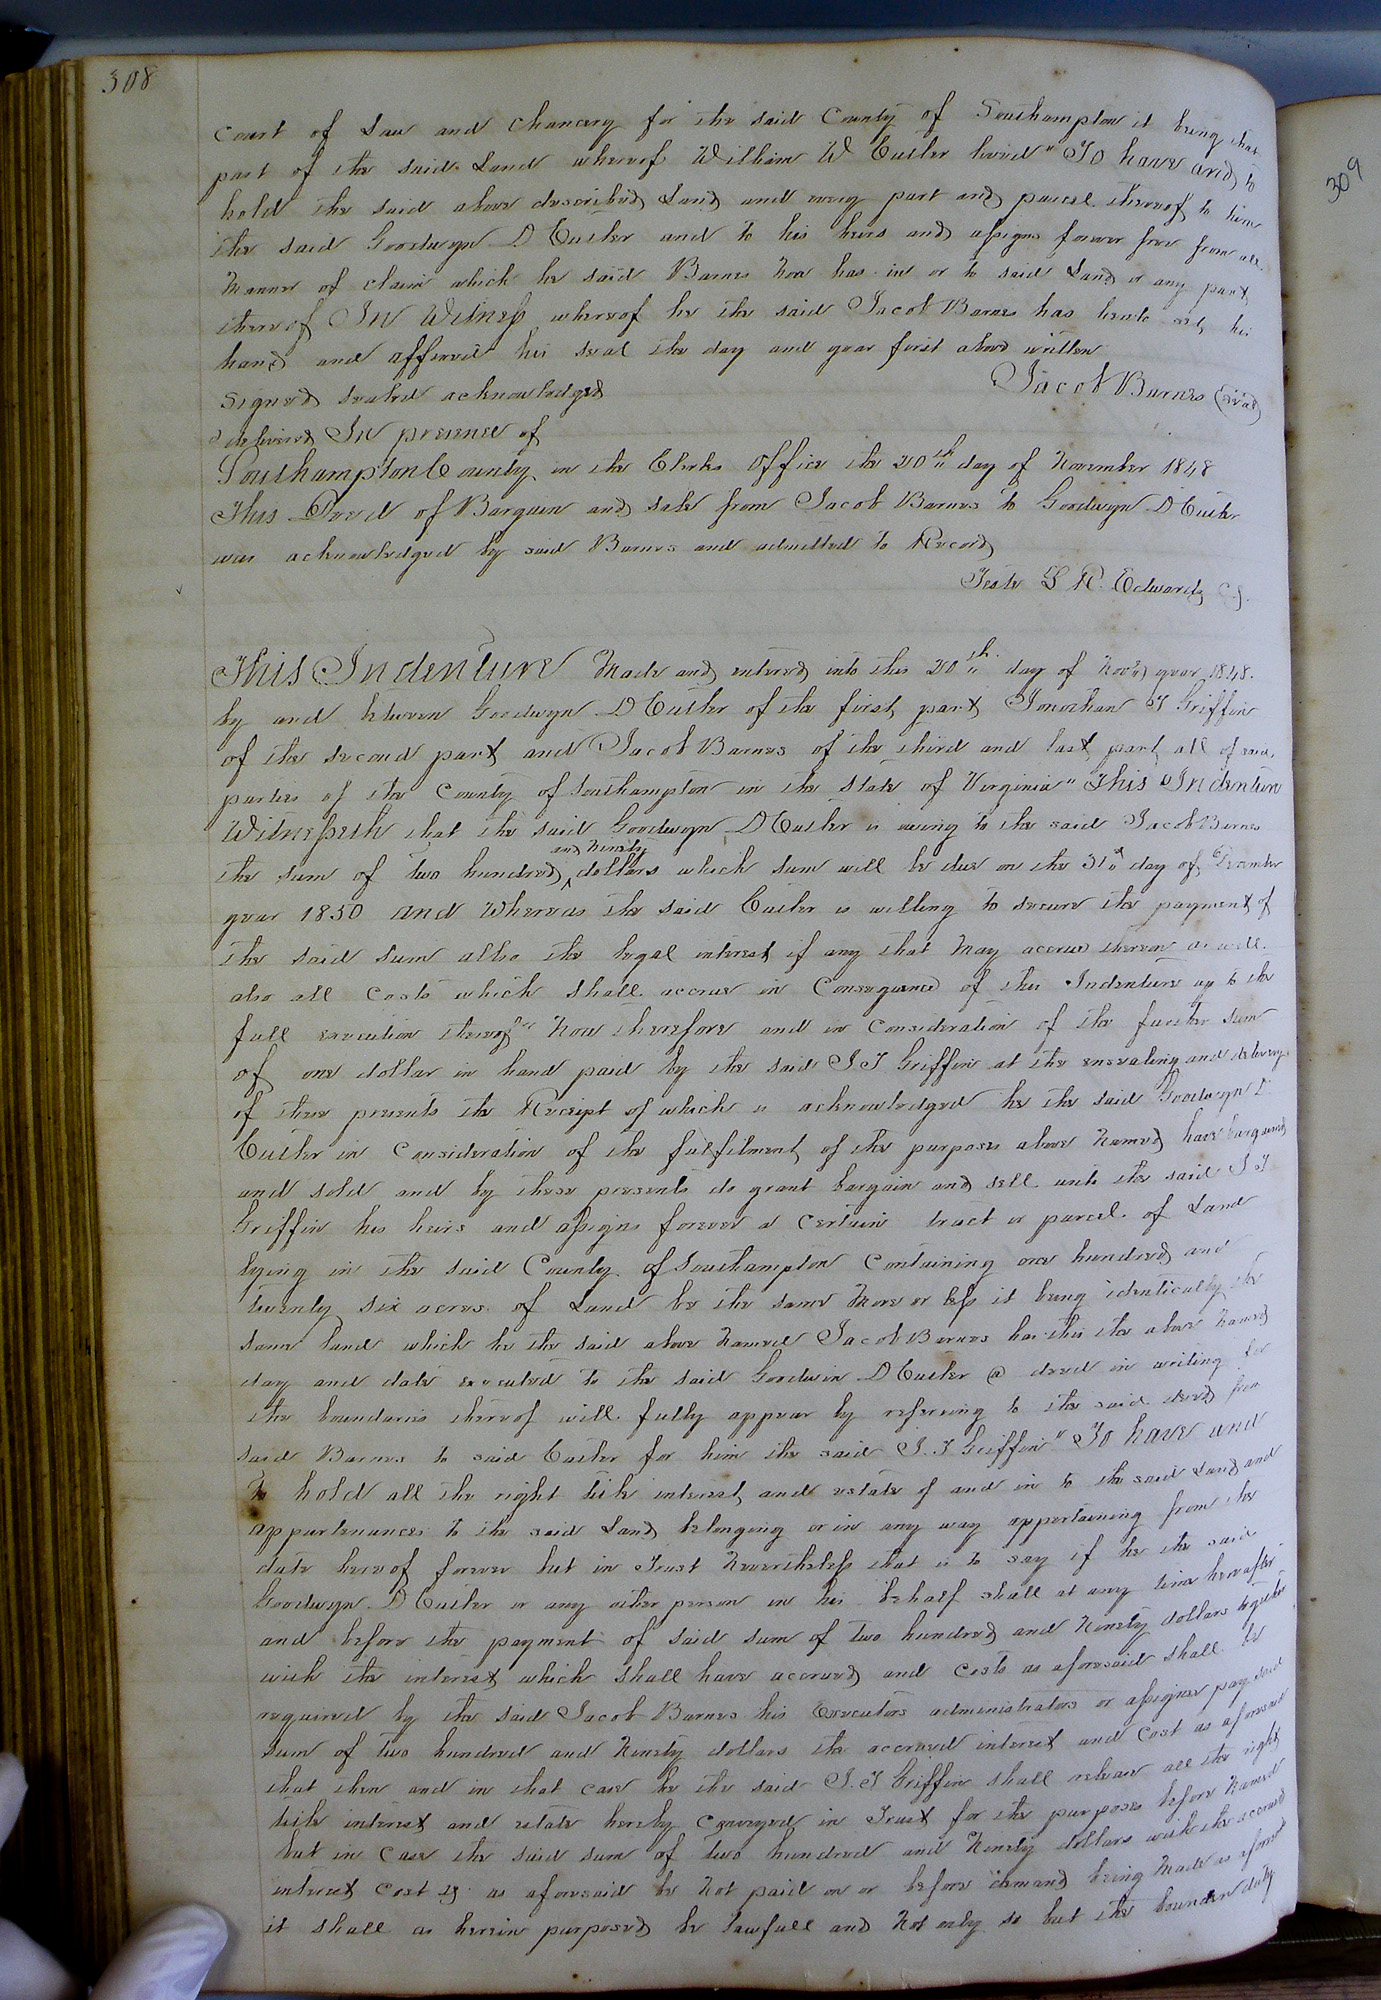 308
309
Court of Law and Chancery for the said County of Southampton it being that
part of the said Land whereof William W Cutler lived" To have and to
hold the said above described Land and every part and parcel thereof to him
the said Goodwyn D Cutler and to his heirs and assigns forever free from all
Manner of claim which he said Barnes Now has in or to said Land or any part
thereof In Witness whereof he the said Jacob Barnes has hereto set his
hand and affixed his seal the day and year first above written
Jacob Barnes (Seal)
Signed sealed acknowledged
delivered In presence of
Southampton County in the Clerks Office the 20th day of November 1848
This Deed of Bargain and sale from Jacob Barnes to Goodwyn D Cutler
was acknowledged by said Barnes and admitted to Record
Teste L R. Edwards C.
This Indenture Made and entered into this 20th day of Novr year 1848.
by and between Goodwyn D Cutler of the first part Jonathan T Griffin
of the second part and Jacob Barnes of the third and last part all of said
parties of the County of Southampton in the State of Virginia" This Indenture
Witnesseth that the said Goodwyn D Cutler is owing to the said Jacob Barnes
and Ninety
the sum of two hundred ^ dollars which sum will be due on the 31st day of December
year 1850 and Whereas the said Cutler is willing to secure the payment of
the said sum also the legal interest if any that May accrue thereon as well
also all Costs which shall accrue in Consequence of this Indenture up to the
full execution thereof Now therefore and in Consideration of the further sum
of one dollar in hand paid by the said J. T Griffin at the ensealing and delivery
of these presents the Receipt of which is acknowledged he the said Goodwyn D
Cutler in Consideration of the fulfilment of the purposes above Named have bargained
and sold and by these presents do grant bargain and sell unto the said J T
Griffin his heirs and assigns forever a Certain tract or parcel of Land
lying in the said County of Southampton Containing one hundred and
twenty six acres of Land be the same More or less it being identically the
same land which he the said above Named Jacob Barnes has this the above Named
day and date executed to the said Goodwin D Cutler @ deed in writing for
the boundaries thereof will fully appear by refering to the said deed from
said Barnes to said Cutler for him the said J. T Griffin" To have and
To hold all the right title interest and estate of and in to the said Land and
appurtenances to the said Land belonging or in any way appertaining from the
date hereof forever but in Trust Nevertheless that is to say if he the said
Goodwyn D Cutler or any other person in his behalf shall at any time hereafter
and before the payment of said sum of two hundred and Ninety dollars together
with the interest which shall have accrued and Costs as aforesaid shall be
required by the said Jacob Barnes his Executors administrators or assignes pay said
sum of two hundred and Ninety dollars the accrued interest and Cost as aforesaid
that then and in that case he the said J. T Griffin shall release all the right
title interest and estate hereby Conveyed in Trust for the purposes before Named
but in Case the said sum of two hundred and Ninety dollars with the accrued
interest Cost as aforesaid be Not paid on or before demand being Made as afores
it shall as herein purposed be lawfull and Not only so but the bounden duty